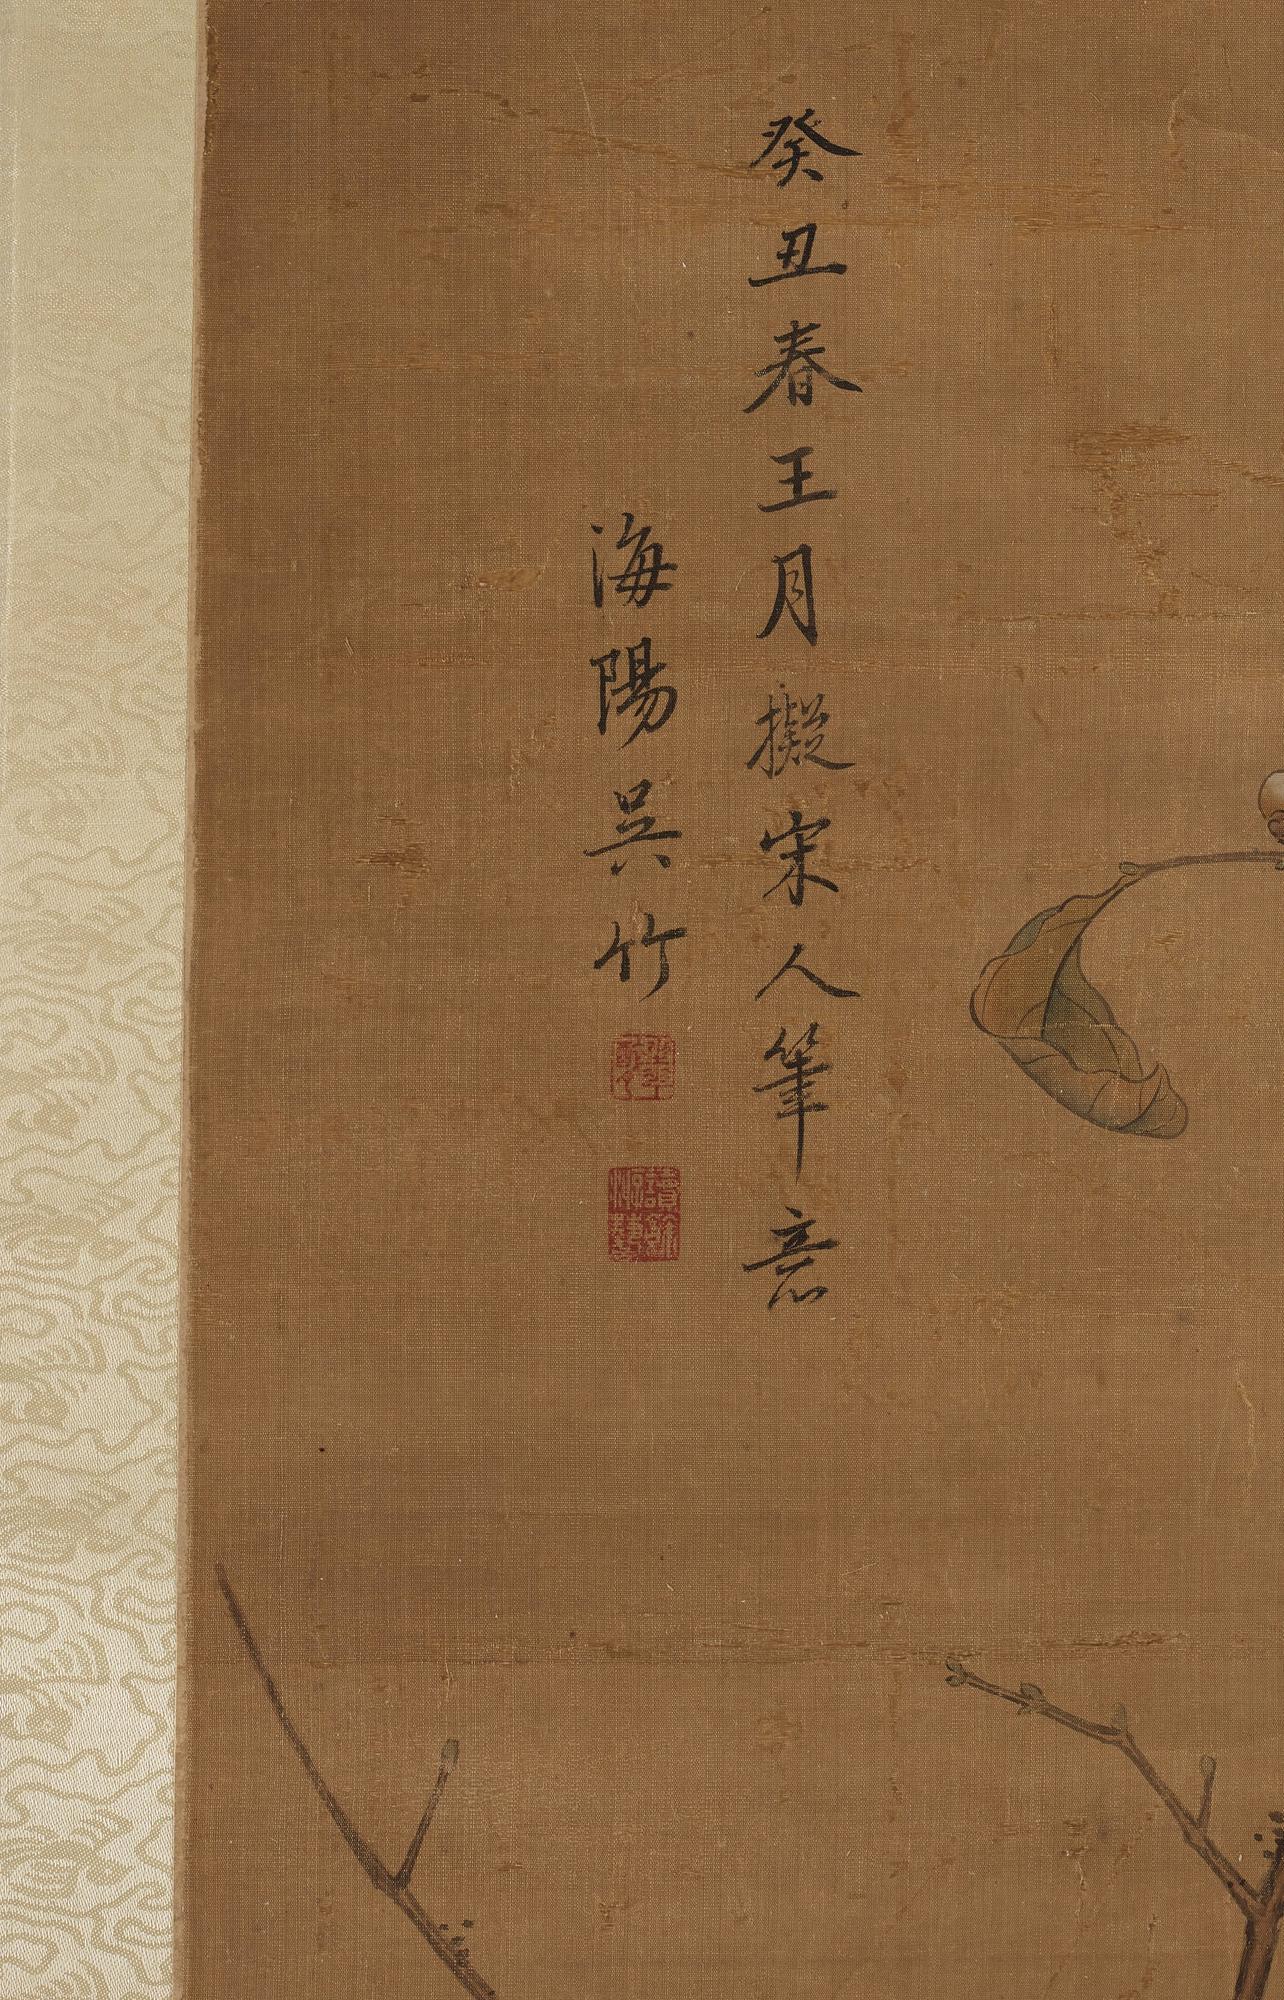 癸丑春王月擬宋人筆意
海陽吳竹